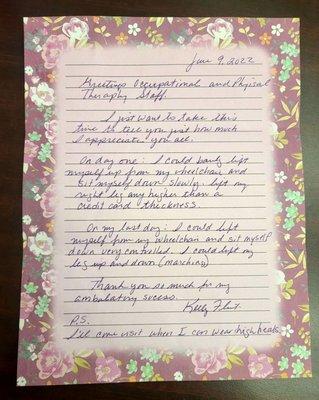 June 9, 2022
Greetings Occupational and Physical
Therapy Staff.
I just want to take this
time to tell you just how much
I appreciate you all.
On day one: I could barely lift
myself up from my wheelchair and
sit myself down slowly. lift my
right leg any higher than a
credit card thickness.
On my last day: I could lift
myself from my wheelchair and sit myself
down very controlled. I could lift my
leg up and down (marching)
Thank you so much for my
ambulating success.
Kelly
P.S.
I'll come visit when I can wear high heels.